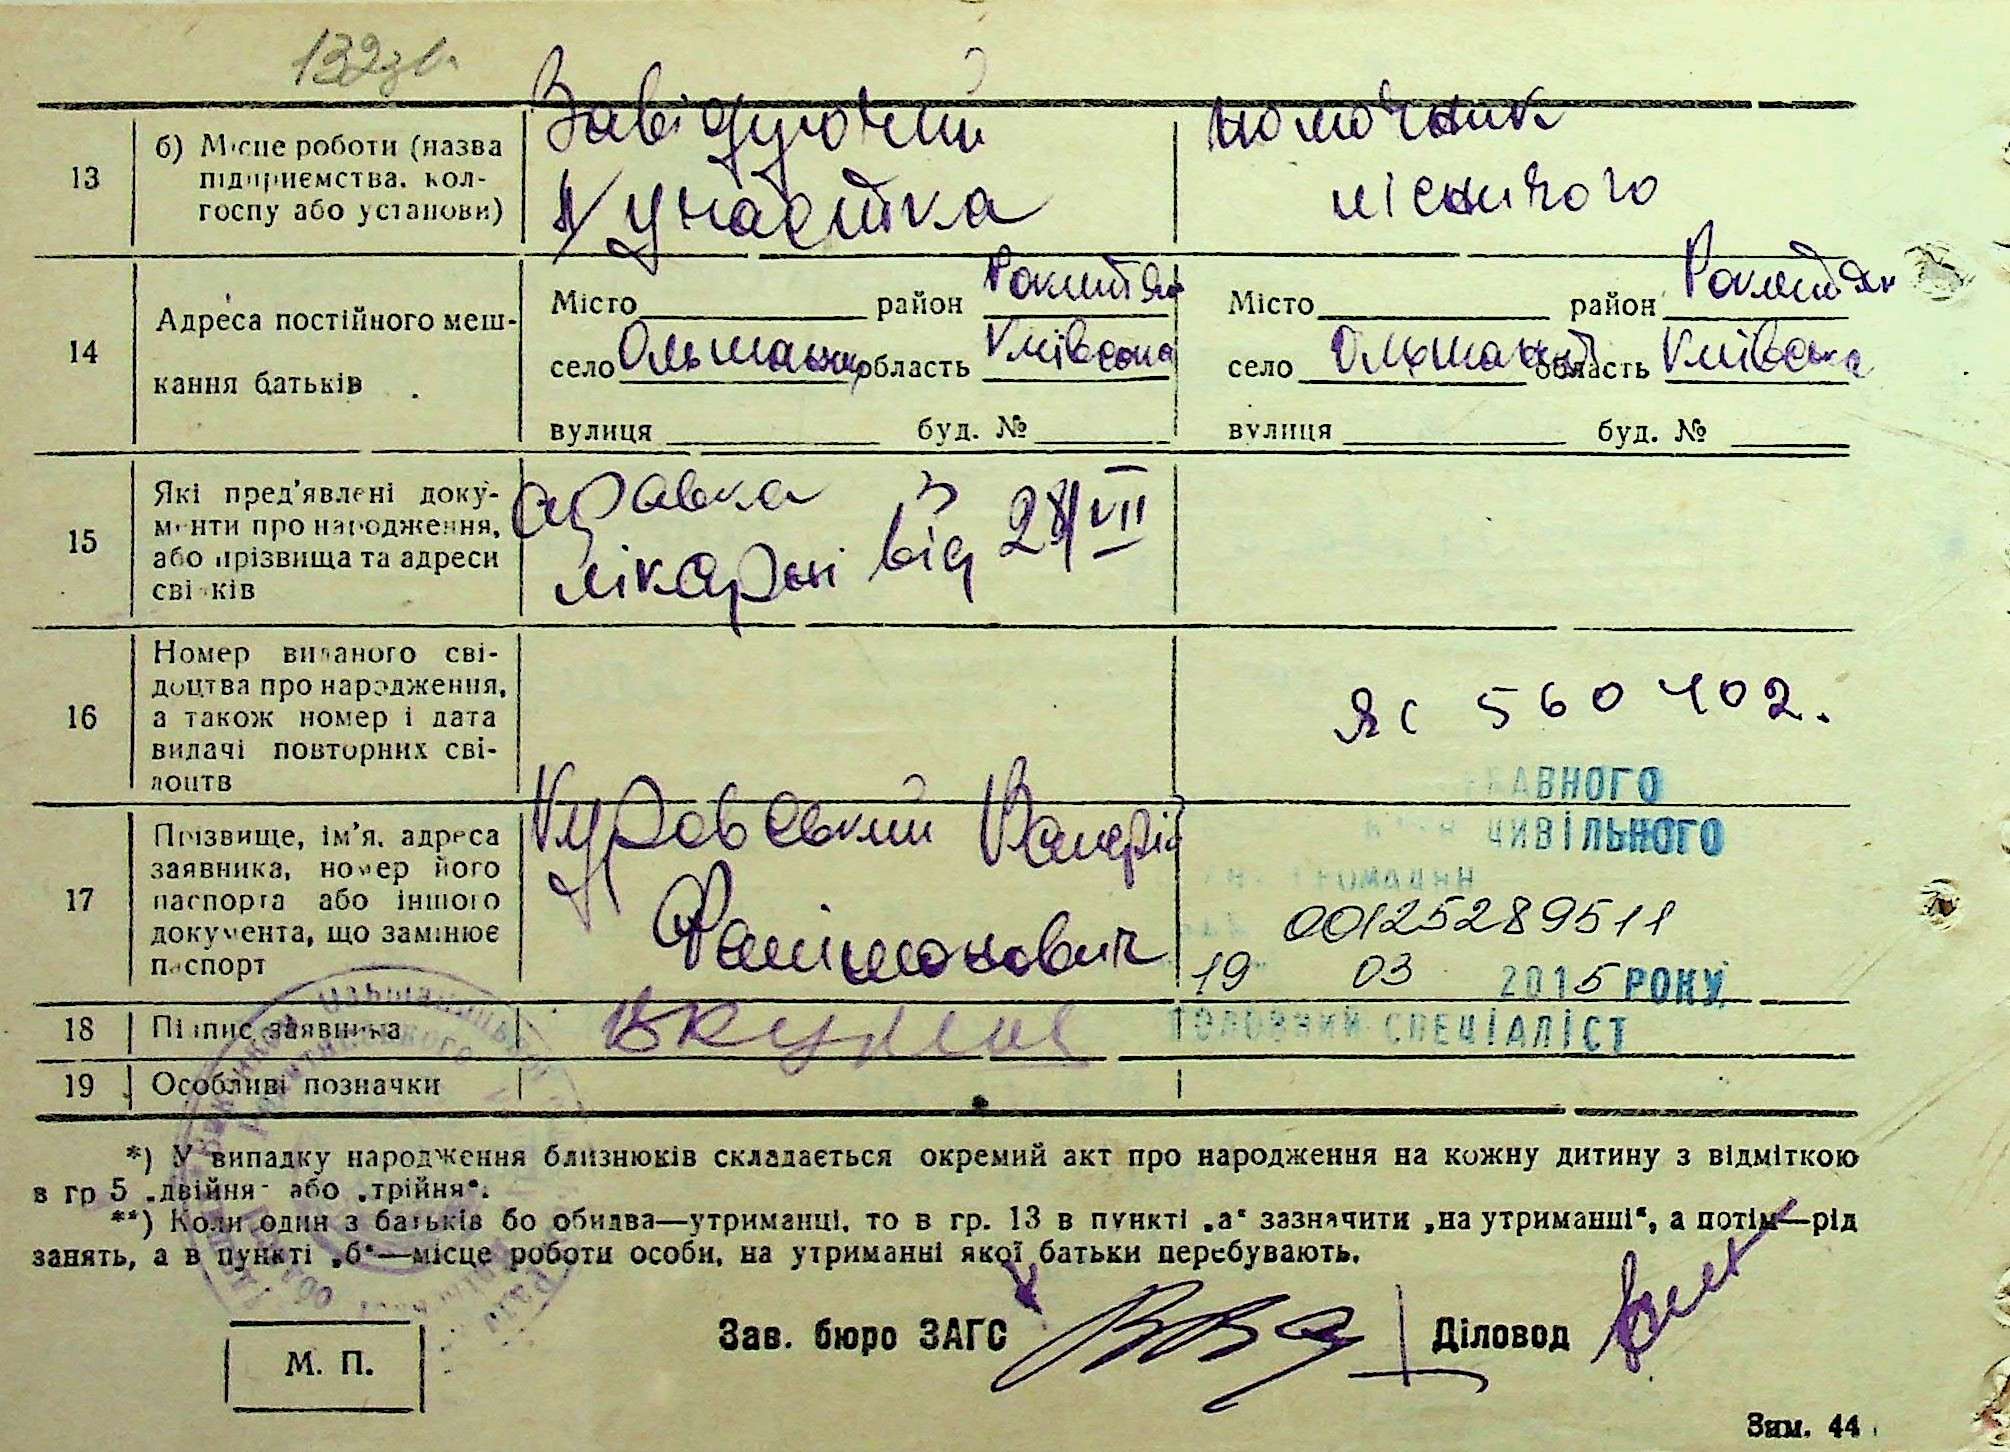 132зв.
13
б) Місце роботи (назва
підприємства, кол-
госпу або установи)
Завідуючий
участка
помочник
лісничого
14
Адреса постійного меш-
кання батьків
Місто район Рокитян
село Ольшаниця область Київська
вулиця буд. №
Місто район Рокитян
село область Київська
вулиця буд. №
15
Які пред'явлені доку-
менти про народження,
або прізвища та адреси
свідків
справка з
лікарні від 28/VII
16
Номер виданого сві-
доцтва про народження,
а також номер і дата
видачі повторних сві-
доцтв
ЯС 560402.
17
Прізвище, ім'я, адреса
заявника, номер його
паспорта або іншого
документа, що замінює
паспорт
Куровський Валерій
ЦИВІЛЬНОГО
ГРОМАДЯН
00125289511
19 03 2015 РОКУ
ГОЛОВНИЙ СПЕЦІАЛІСТ
18
Підпис заявника
19
Особливі позначки
*) У випадку народження близнюків складається окремий акт про народження на кожну дитину з відміткою
в гр 5 „двійня" або „трійня".
**) Коли один з батьків бо обидва—утриманці, то в гр. 13 в пункті „а" зазначити „на утриманні", а потім—рід
занять, а в пункті „б"—місце роботи особи, на утриманні якої батьки перебувають.
М. П.
Зав. бюро ЗАГС
Діловод
Зам. 44